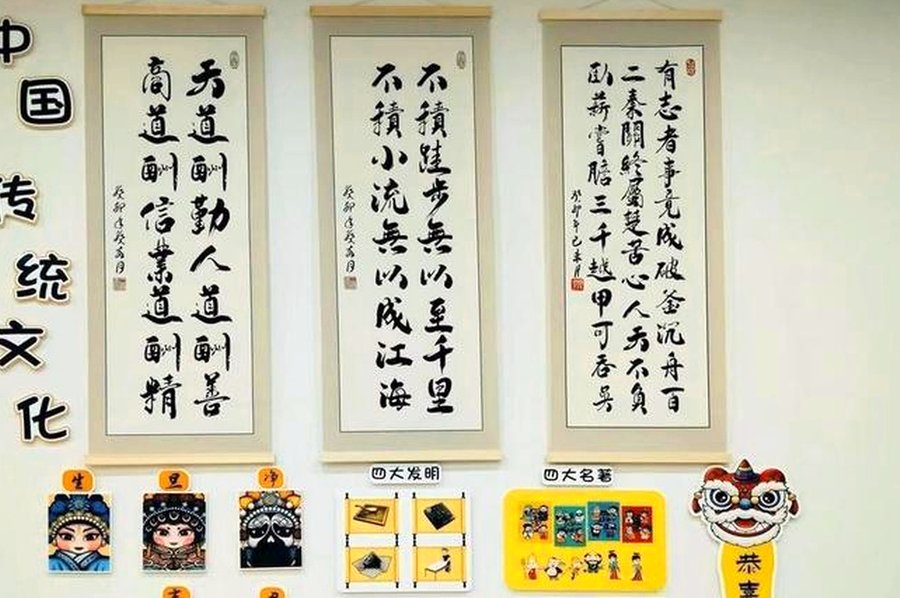 中国传统文化
天道酬勤人道酬善
商道酬信業道酬精
不積跬步無以至千里
不積小流無以成江海
有志者事竟成破釜沉舟百
二秦關終屬楚苦心人天不負
臥薪嘗膽三千越甲可吞吳
癸卯年己未月
生
旦
净
四大发明
四大名著
恭喜